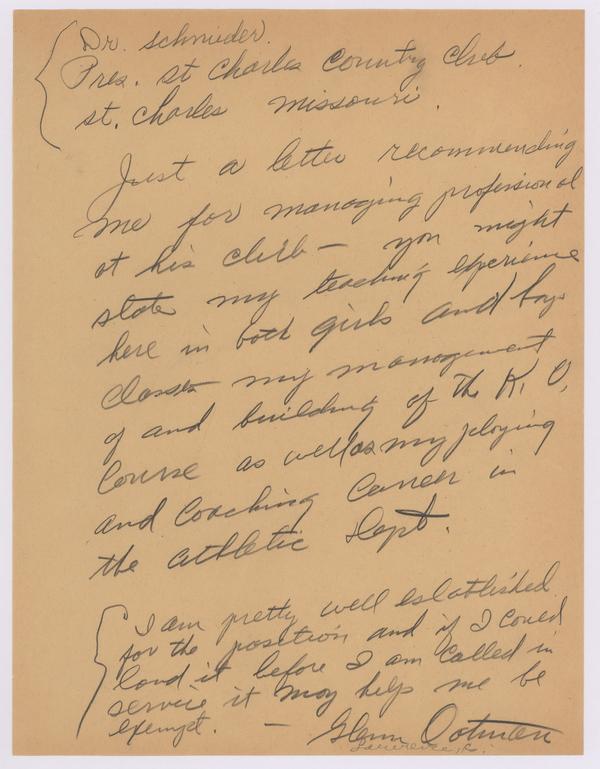 Dr. Schnieder.
Pres. St Charles Country Club.
St. Charles Missouri.
Just a letter recommending
me for managing professional
at his club - you might
state my teaching experience
here in both girls and boys
classes my management
of and building of the K. O,
Course as well as my playing
and coaching career in
the athletic Dept.
I am pretty well established
for the position and if I could
land it before I am called in
service it may help me be
exempt. - Glenn Oatman
Lawrence, K.